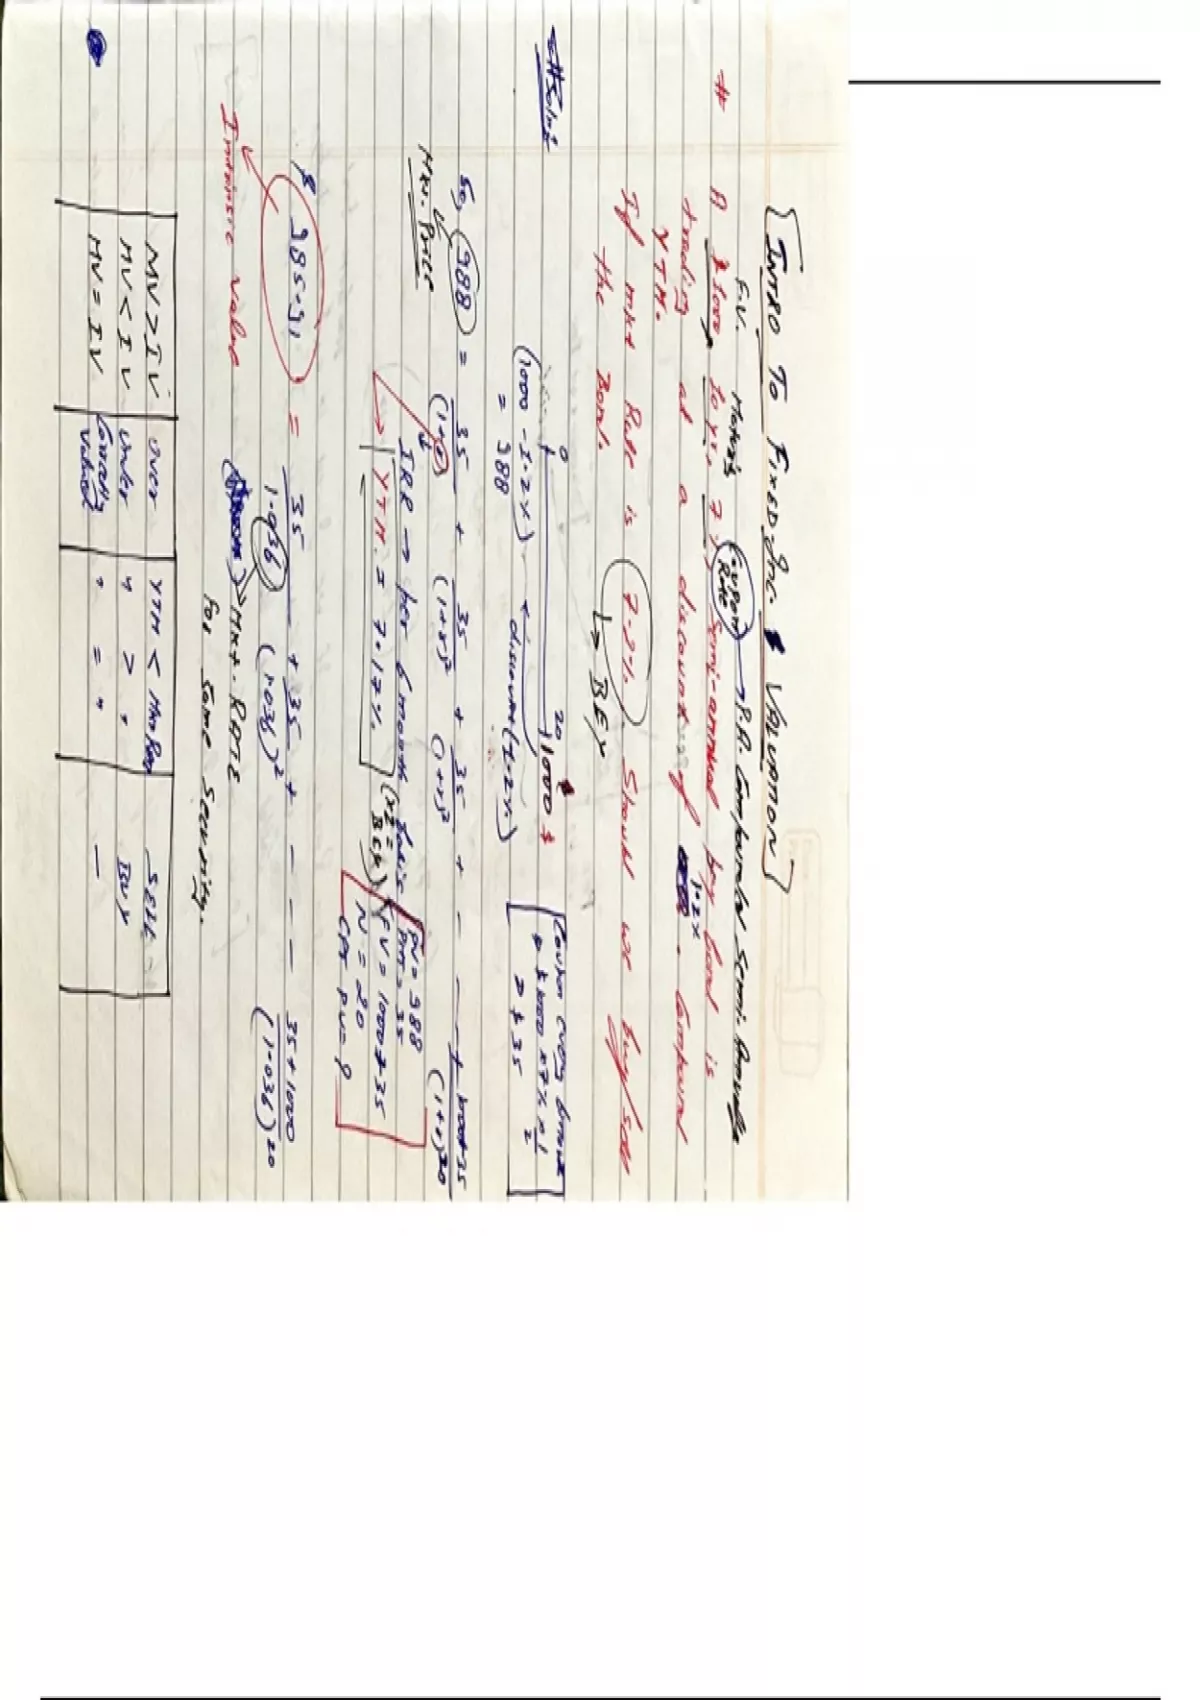 INTRO TO FIXED-Inc. & VALUATION
F.V. Coupon Rate → P.A. Compounded Semi-Annually
# A $1000, 10 yr, 7% semi-annual pay bond is
trading at a discount of 1.2% . Compound
YTM.
If mkt Rate is 7.2%. Should we buy/sell
the Bond.
↳ BEY
# Sol:-
0 20
1000 $
(1000 - 1.2%) ← discount (1.2%)
= 988
Coupon every
$ 1000 × 7% × 1/2
= $ 35
So, 988 = 35/(1+r) + 35/(1+r)² + 35/(1+r)³ + - - - + 1000+35/(1+r)20
Mkt. Price
IRR → per 6 month basis
→ YTM = 7.17%. (×2 = BEY)
PV = 988
PMT = 35
FV = 1000+35
N = 20
CPT PV = ?
$ 985.91 = 35/1.036 + 35/(1.036)2 + - - - 35+1000/(1.036)20
Intrinsic Value
Mkt. RATE
for same security.
MV > IV over YTM < Mkt Rate SELL
MV < IV under " > " BUY
MV = IV Correctly valued " = " —